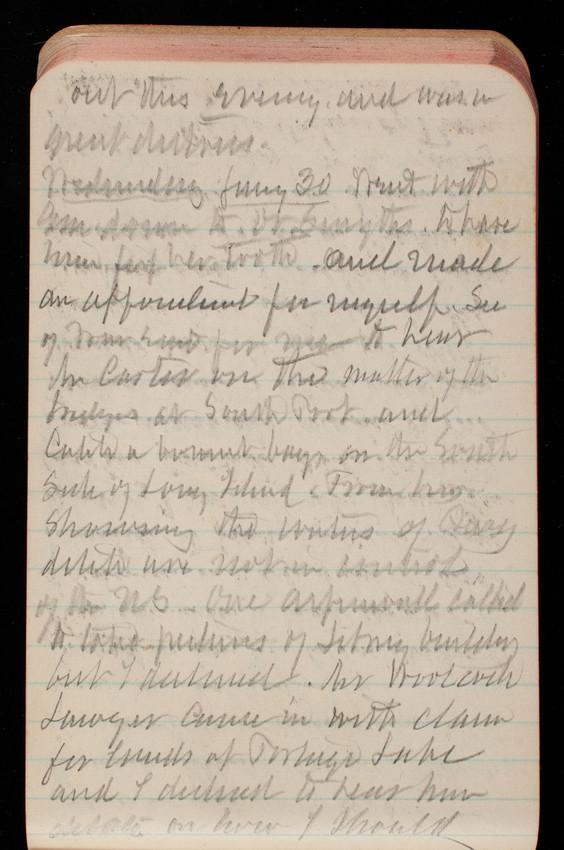 out this Evening. and was in
great distress.
Wednesday Jany 30 Went with
Em down to Dr Smyths. to have
him fix her tooth. and made
an appointment for myself. Sec
of War Send for me to hear
Mr Carter on the matter of the
bridges at South Port. and
Catch a bay on the South
Side of Long Island. From
Showing the waters of
ditch are not in control
of the US. One called
to take pictures of Library building
but I declined. Mr Woolcock
Lawyer Came in with claim
for lands at Portage Lake
and I declined to hear him
debate on how I should